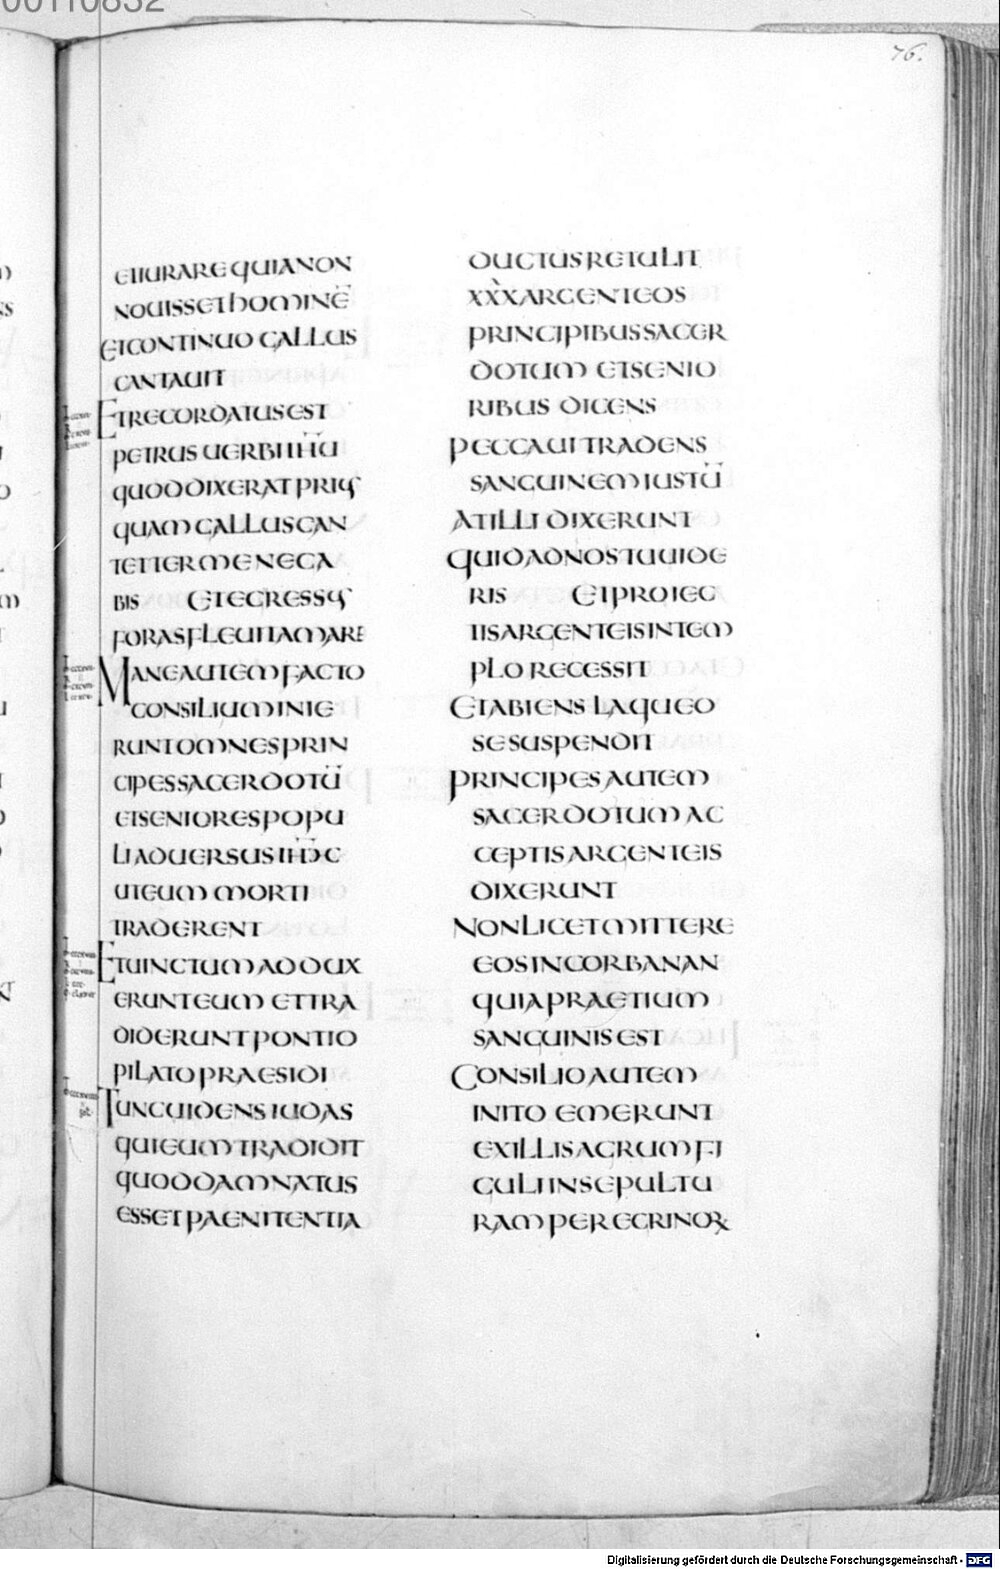 76.
ETIURARE QUIA NON
NOUISSET hOMINĒ
ET CONTINUO GALLUS
CANTAUIT
ET RECORDATUS EST
PETRUS UERBI IHŪ
QUOD DIXERAT PRIUSQ
QUAM GALLUS CAN
TET TER ME NEGA
BIS ET EGRESSUS
FORAS FLEUIT AMARE
MANE AUTEM FACTO
CONSILIUM INIE
RUNT OMNES PRIN
CIPES SACERDOTŪ
ET SENIORES POPU
LI ADUERSUS IHM
UT EUM MORTI
TRADERENT
ET UINCTUM ADDUX
ERUNT EUM ET TRA
DIDERUNT PONTIO
PILATO PRAESIDI
TUNC UIDENS IUDAS
QUI EUM TRADIDIT
QUOD DAMNATUS
ESSET PAENITENTIA
DUCTUS RETULIT
XXX ARGENTEOS
PRINCIPIBUS SACER
DOTUM ET SENIO
RIBUS DICENS
PECCAUI TRADENS
SANGUINEM IUSTŪ
AT ILLI DIXERUNT
QUID AD NOS TU UIDE
RIS ET PROIEC
TIS ARGENTEIS IN TEM
PLO RECESSIT
ET ABIENS LAQUEO
SE SUSPENDIT
PRINCIPES AUTEM
SACERDOTUM AC
CEPTIS ARGENTEIS
DIXERUNT
NON LICET MITTERE
EOS IN CORBANAN
QUIA PRAETIUM
SANGUINIS EST
CONSILIO AUTEM
INITO EMERUNT
EX ILLIS AGRUM FI
GULI IN SEPULTU
RAM PEREGRINOꝜ
Digitalisierung gefördert durch die Deutsche Forschungsgemeinschaft - DFG